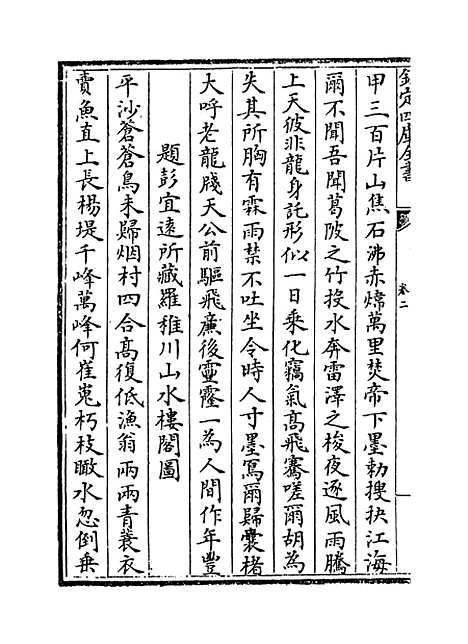 欽定四庫全書
卷二
甲三百片山焦石沸赤煒萬里焚帝下墨勅搜抉江海
爾不聞吾聞葛陂之竹投水奔雷澤之梭夜逐風雨騰
上天彼非龍身託形似一日乘化竊氣高飛騫嗟爾胡為
失其所胸有霖雨禁不吐坐令時人寸墨寫爾歸囊楮
大呼老龍牋天公前驅飛廉後靈霳一為人間作年豐
題彭宜遠所藏羅稚川山水樓閣圖
平沙蒼蒼鳥未歸烟村四合高復低漁翁兩兩青蓑衣
賣魚直上長楊堤千峰萬峰何崔嵬朽枝瞰水忽倒垂